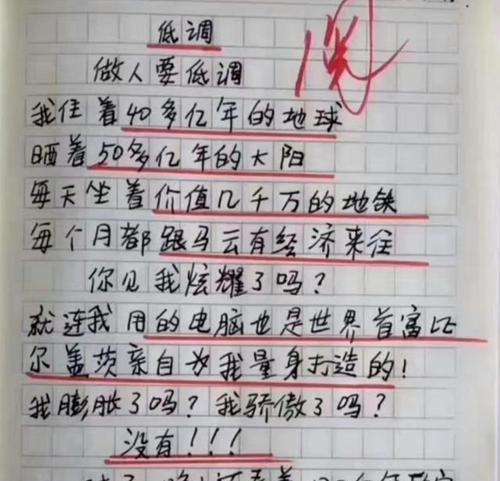 低调
做人要低调
我住着40多亿年的地球
晒着50多亿年的太阳
每天坐着价值几千万的地铁
每个月都跟马云有经济来往
你见我炫耀了吗?
就连我用的电脑也是世界首富比
尔盖茨亲自为我量身打造的!
我膨胀了吗?我骄傲了吗?
没有!!!